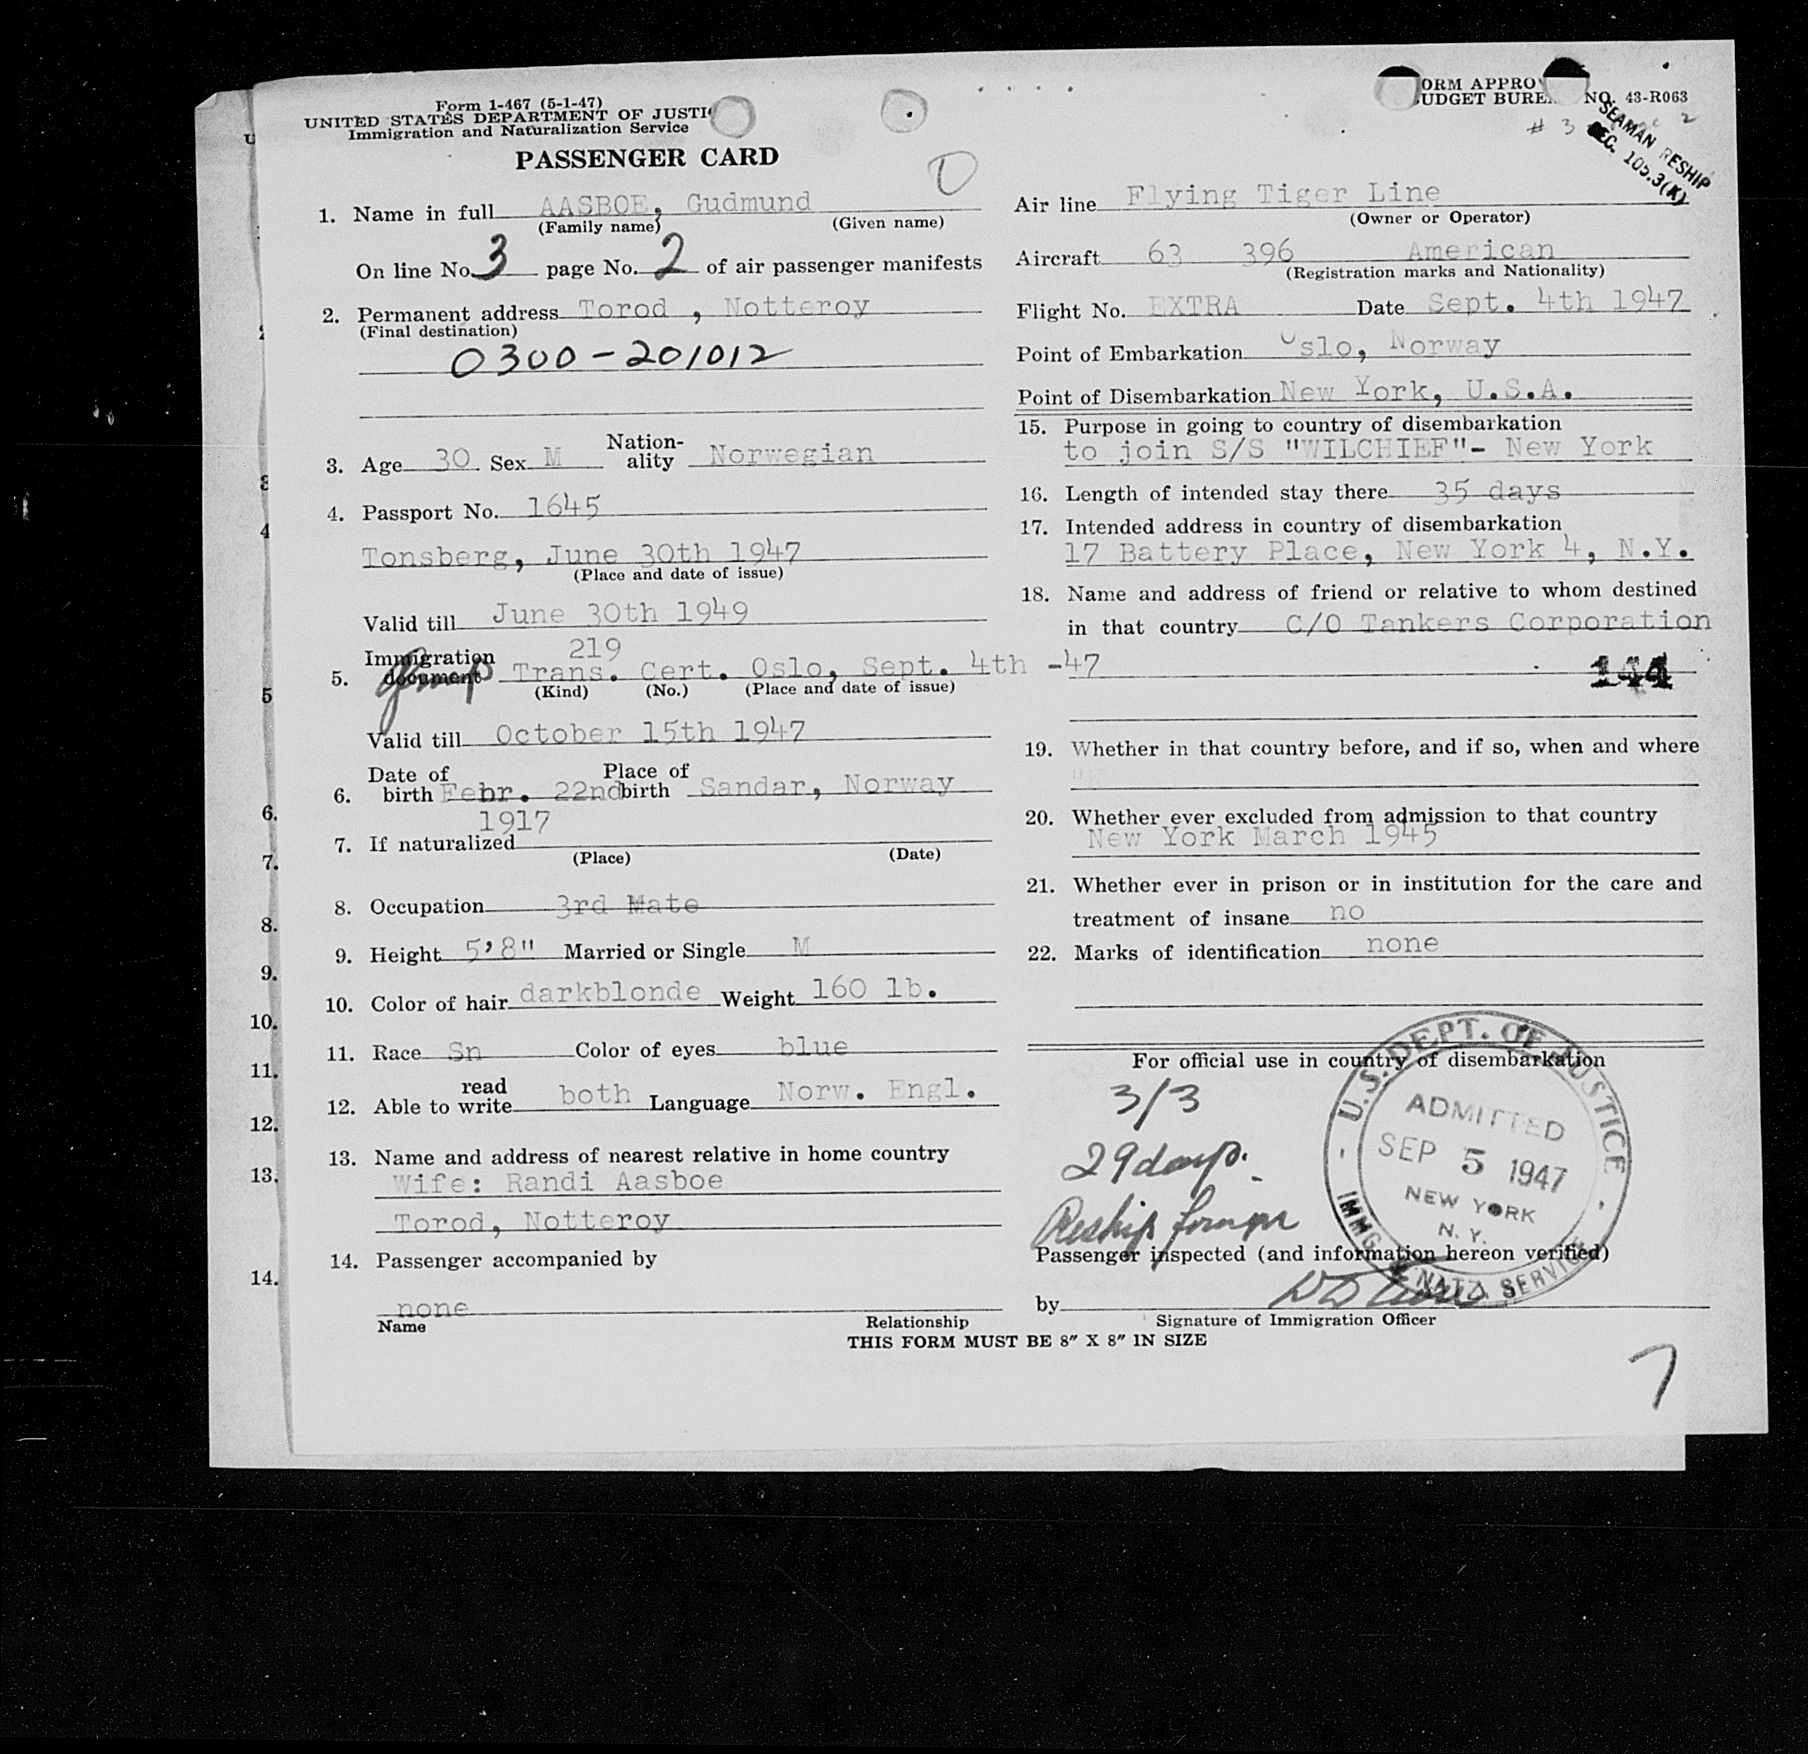 Form 1-467 (5-1-47)
UNITED STATES DEPARTMENT OF JUSTI
Immigration and Naturalization Service
PASSENGER CARD
ORM APPRO
UDGET BURE NO. 43-R063
# 3 2
SEAMAN RESHIP
SEC. 105.3(K)
1. Name in full AASBOE, Gudmund
(Family name) (Given name)
On line No. 3 page No. 2 of air passenger manifests
2. Permanent address Torod , Notteroy
(Final destination)
0300-201012
3. Age 30 Sex M Nation-
ality Norwegian
4. Passport No. 1645
Tonsberg, June 30th 1947
(Place and date of issue)
Valid till June 30th 1949
219
5. Immigration
document Trans. Cert. Oslo, Sept. 4th -47
(Kind) (No.) (Place and date of issue)
Valid till October 15th 1947
6. Date of
birth Febr. 22nd Place of
birth Sandar, Norway
1917
7. If naturalized
(Place) (Date)
8. Occupation 3rd Mate
9. Height 5'8" Married or Single M
10. Color of hair darkblonde Weight 160 lb.
11. Race Sn Color of eyes blue
12. Able to read
write both Language Norw. Engl.
13. Name and address of nearest relative in home country
Wife: Randi Aasboe
Torod, Notteroy
14. Passenger accompanied by
none
Name Relationship
Air line Flying Tiger Line
(Owner or Operator)
Aircraft 63 396 American
(Registration marks and Nationality)
Flight No. EXTRA Date Sept. 4th 1947
Point of Embarkation Oslo, Norway
Point of Disembarkation New York, U.S.A.
15. Purpose in going to country of disembarkation
to join S/S "WILCHIEF"- New York
16. Length of intended stay there 35 days
17. Intended address in country of disembarkation
17 Battery Place, New York 4, N.Y.
18. Name and address of friend or relative to whom destined
in that country C/O Tankers Corporation
144
19. Whether in that country before, and if so, when and where
20. Whether ever excluded from admission to that country
New York March 1945
21. Whether ever in prison or in institution for the care and
treatment of insane no
22. Marks of identification none
For official use in country of disembarkation
3/3
29 days.
Reship foreign
U.S. DEPT. OF JUSTICE
ADMITTED
SEP 5 1947
NEW YORK
N. Y.
IMMIG. & NATZ. SERVICE
Passenger inspected (and information hereon verified)
by
Signature of Immigration Officer
THIS FORM MUST BE 8" X 8" IN SIZE
7
U
3
4
5
6.
7.
8.
9.
10.
11.
12.
13.
14.